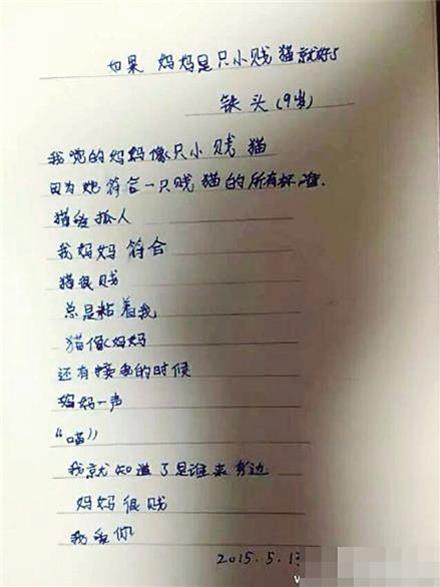 如果 妈妈是只小贱猫就好了
铁头(9岁)
我觉的妈妈像只小贱猫
因为她符合一只贱猫的所有标准.
猫爱抓人
我妈妈符合
猫很贱
总是粘着我
猫像妈妈
还有的时候
妈妈一声
“喵”
我就知道了是谁来身边
妈妈很贱
我爱你
2015.5.13